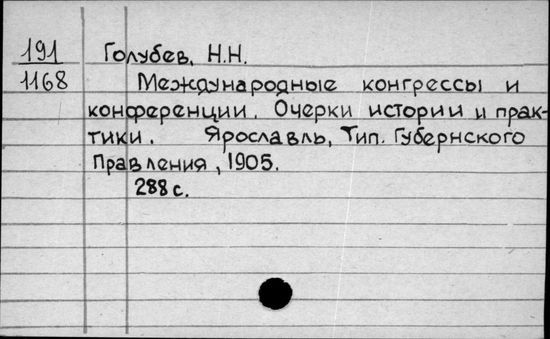 191 Голубев, Н.Н.
1168 Международные конгрессы и
конференции. Очерки истории и прак-
тики. Ярославль, Тип. Губернского
Правления, 1905.
288 с.